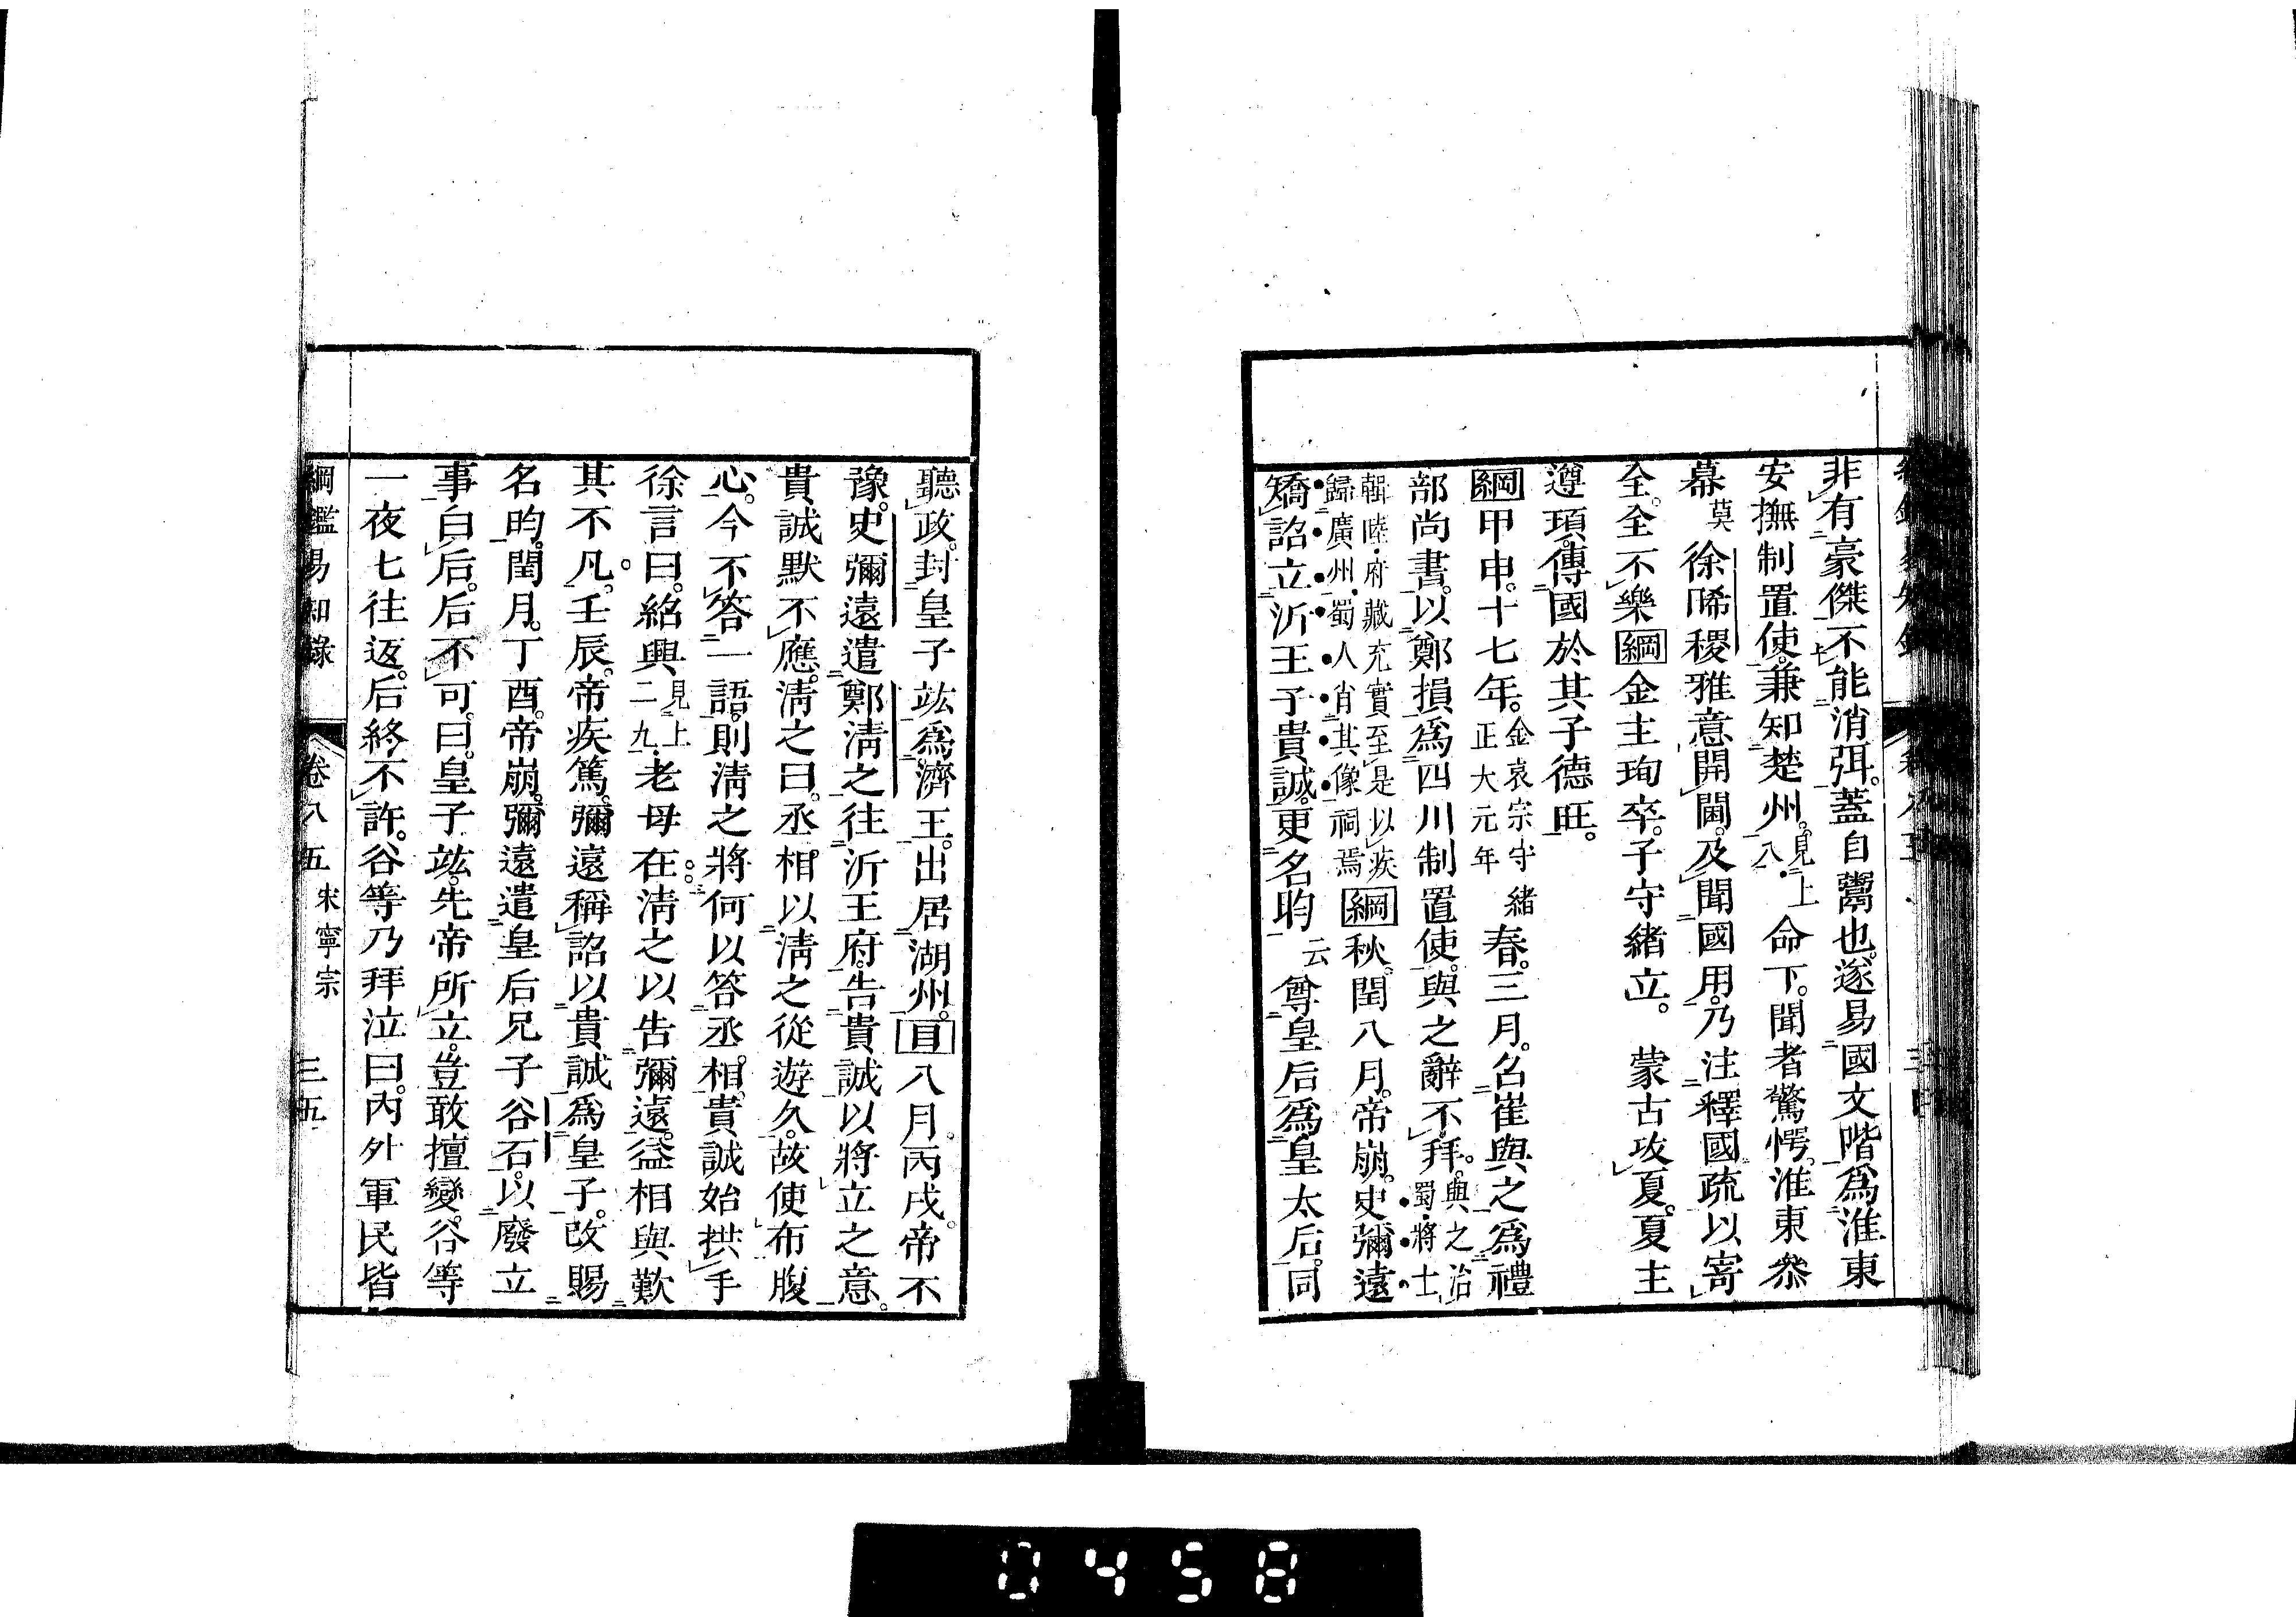 非有豪傑不能消弭。蓋自鬻也。遂易國文階爲淮東
安撫制置使。兼知楚州。見上八。命下。聞者驚愕。淮東叅
幕莫徐晞稷雅意開閫。及聞國用。乃注釋國疏以寄
全。全不樂綱金主珣卒。子守緒立。蒙古攻夏。夏主
遵頊。傳國於其子德旺。
綱甲申。十七年。金哀宗守緒正大元年春。三月。召崔與之爲禮
部尚書。以鄭損爲四川制置使。與之辭不拜。與之治蜀。將士
輯睦。府藏充實至是以疾歸廣州。蜀人肖其像祠焉綱秋。閏八月。帝崩。史彌遠
矯詔立沂王子貴誠。更名昀云尊皇后爲皇太后。同
聽政。封皇子竑爲濟王。出居湖州。目八月。丙戌。帝不
豫。史彌遠遣鄭淸之往沂王府。告貴誠以將立之意。
貴誠默不應。淸之曰。丞相以淸之從遊久。故使布腹
心。今不答一語。則淸之將何以答丞相。貴誠始拱手
徐言曰。紹興見上二九。老母在。淸之以告彌遠。益相與歎
其不凡。壬辰。帝疾篤。彌遠稱詔以貴誠爲皇子。改賜
名昀。閏月。丁酉。帝崩。彌遠遣皇后兄子谷石。以廢立
事白后。后不可。曰。皇子竑。先帝所立。豈敢擅變。谷等
一夜七往返。后終不許。谷等乃拜泣曰。內外軍民皆
綱鑑易知錄 卷八五 宋寧宗 三五
0458